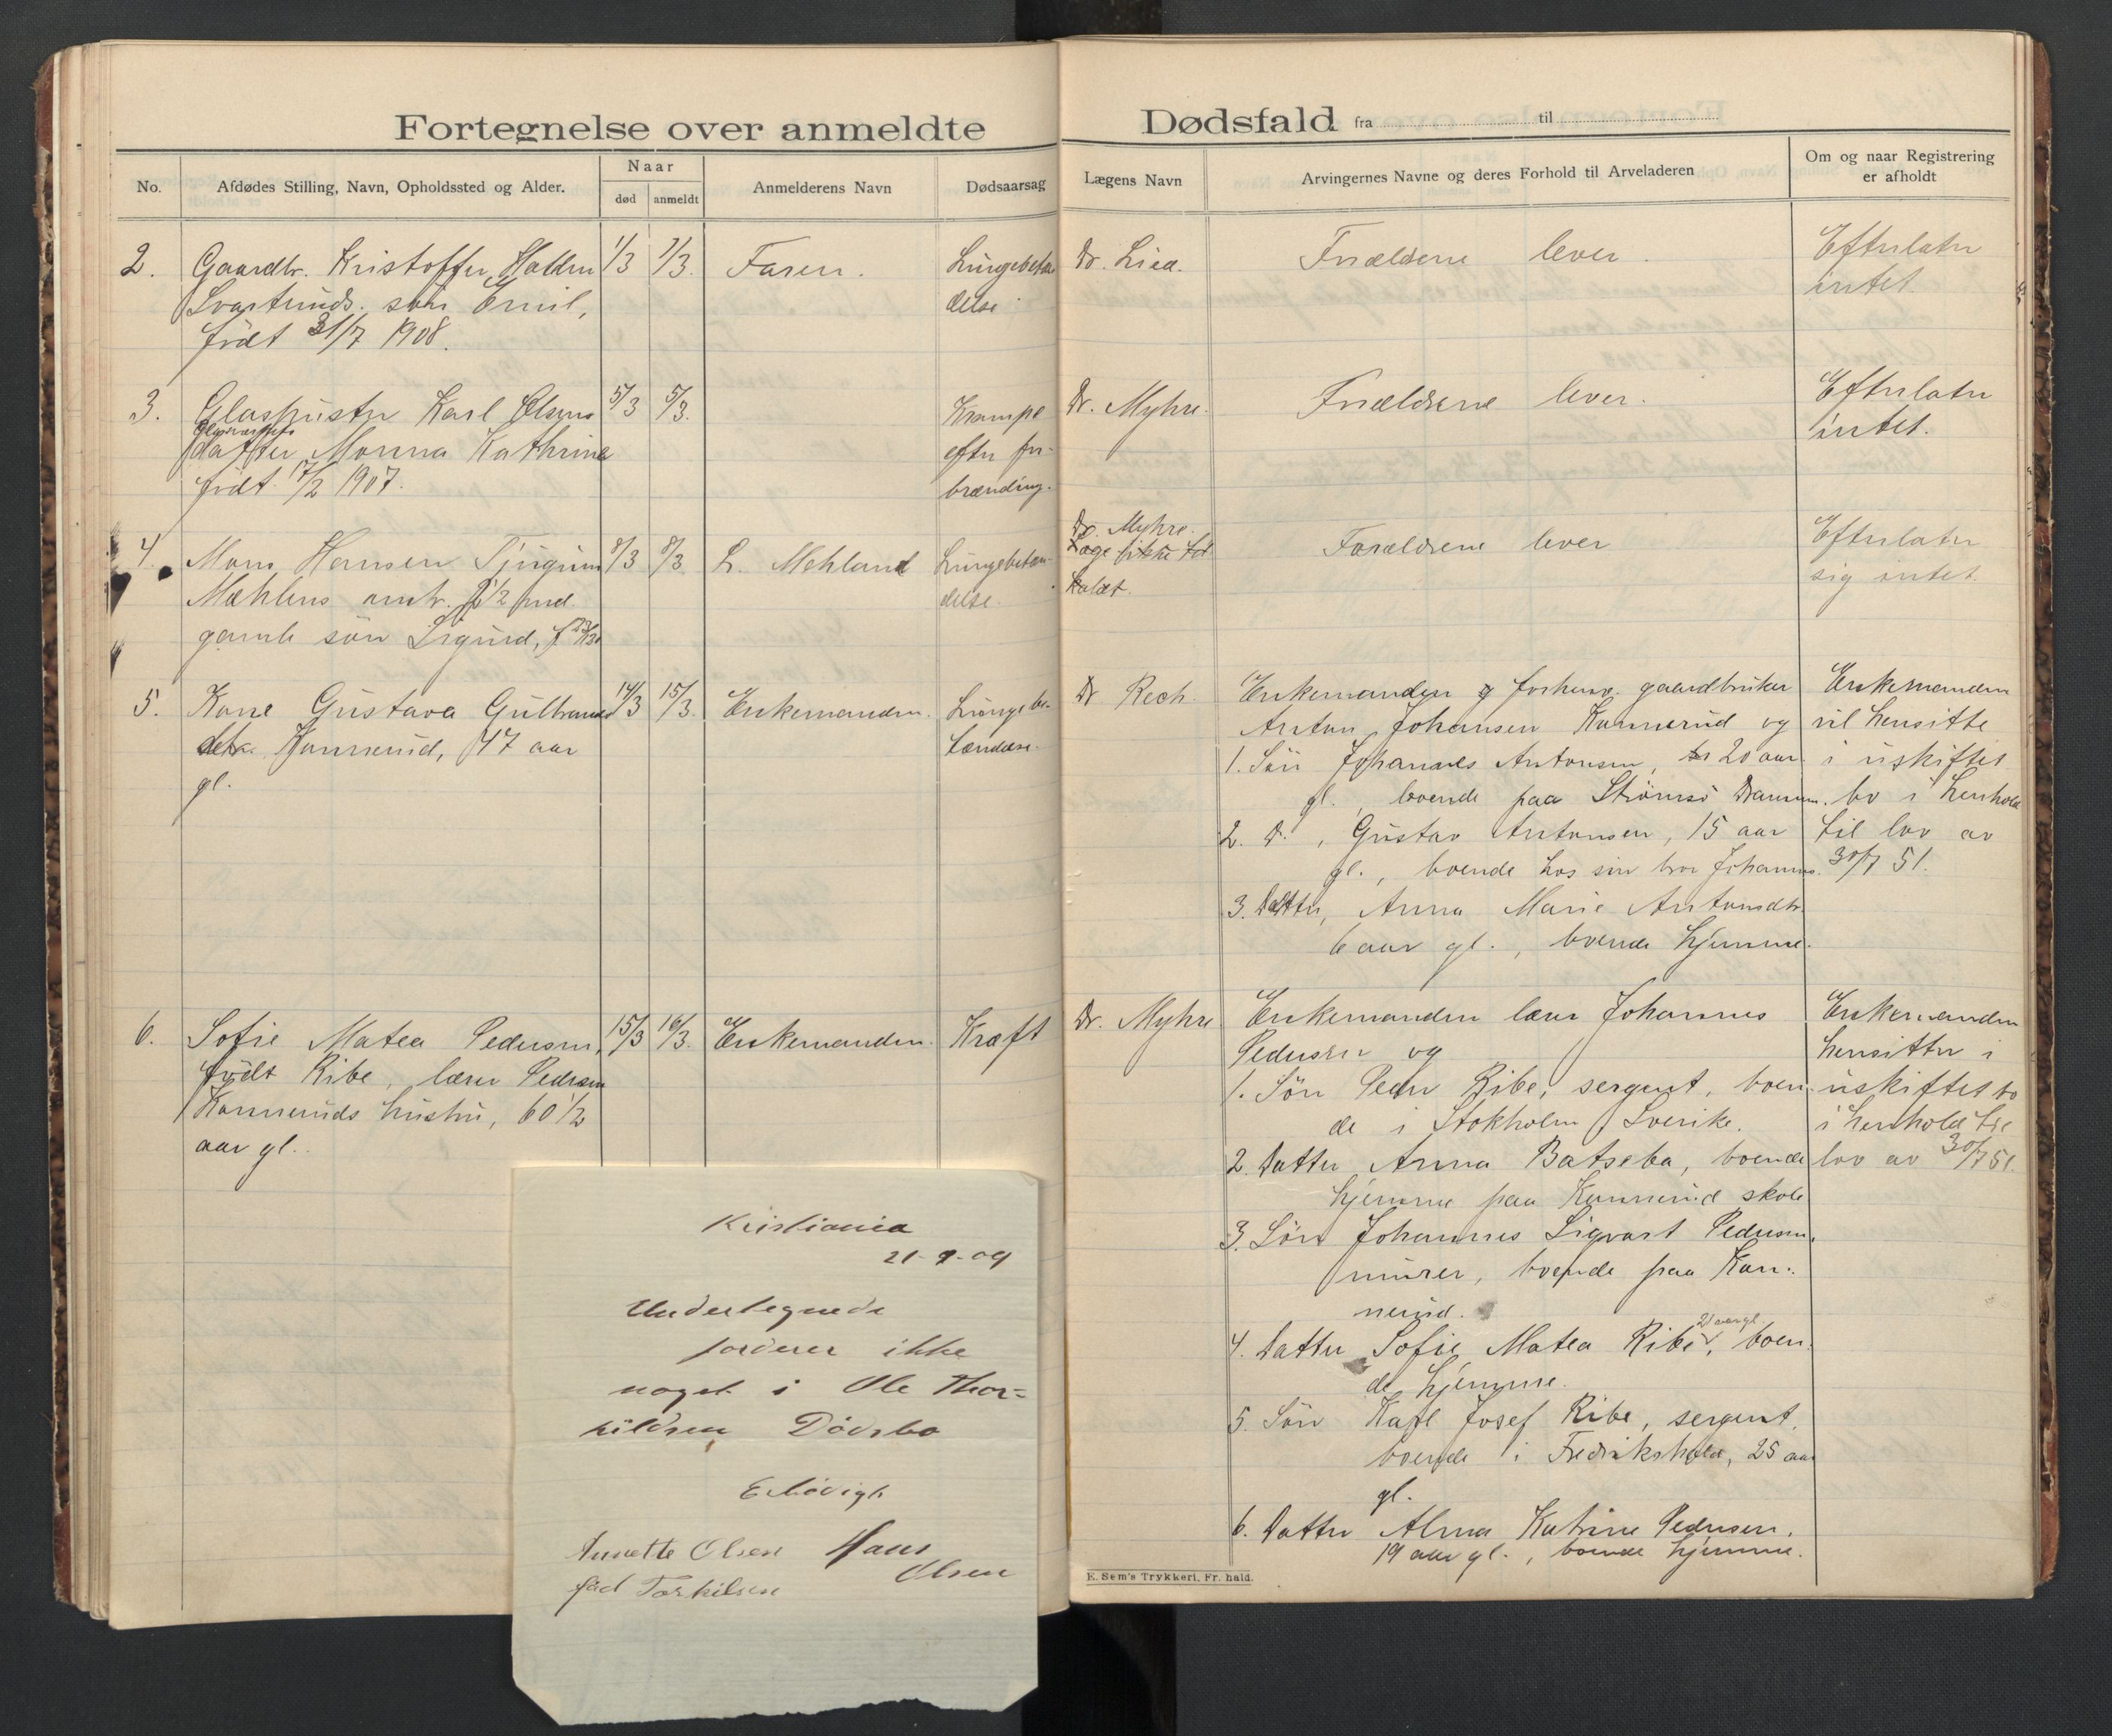 Fortegnelse over anmeldte
No.
Afdødes Stilling, Navn, Opholdssted og Alder.
Naar
død
anmeldt
Anmelderens Navn
Dødsaarsag
2. Gaardbr. Kristoffer Hallen 1/3 7/3. Faren. Lungebetæn
Svartruds. søn Emil, delse
født 31/7 1908.
3. Glaspuster Karl Olsens 5/3 5/3. Krampe
datter Monna Kathrine efter for-
født 17/2 1907. brænding.
4. Mons Hansen 8/3 8/3 L. Mehland Lungebetæn-
Mæhlens 2 1/2 mnd. delse.
gamle søn Sigurd,
5. Kone Gustava Gulbrands 14/3 15/3. Enkemanden. Lungebe-
Konnerud, 47 aar tændese.
gl.
6. Sofie Matea Pedersen, 15/3 16/3. Enkemanden. Kræft
født Ribe, lærer Pedersen
Konneruds hustru, 60 1/2
aar gl.
Kristiania
21-9-09
Undertegnede
forderer ikke
noget i Ole Thor-
kildsen Dødsbo
Erbødigt
Annette Olsen Hans
fød Torkilsen Olsen
Dødsfald fra til
Lægens Navn
Arvingernes Navne og deres Forhold til Arveladeren
Om og naar Registrering
er afholdt
Dr. Lied. Forældrene lever. Efterlater
intet.
Dr. Myhre. Forældrene lever. Efterlater
intet.
Dr. Myhre.
Læge ikke til Forældrene lever Efterlater
kaldt. sig intet.
Dr Rech. Enkemanden og forhenv. gaardbruker Enkemanden
Anton Johansen Konnerud og vil hensitte
1. Søn Johannes Antonsen, 20 aar i uskiftet
gl., boende paa Strømsø Drammen. bo i henhold
2. D., Gustav Antonsen, 15 aar til lov av
gl., boende hos sin bror Johannes. 30/7 51.
3. Datter, Anna Marie Antonsdtr.
6 aar gl., boende hjemme.
Dr. Myhre Enkemanden lærer Johannes Enkemanden
Pedersen og hensitter i
1. Søn Peder Ribe, sergent, boen uskiftet bo
de i Stokholm, Sverike. i henhold til
2. Datter Anna Batseba, boende lov av 30/7 51.
hjemme paa Konnerud skole
3. Søn Johannes Sigvart Pedersen,
murer, boende paa Kon-
nerud.
4. Datter Sofie Matea Ribe, 21 aar gl. boen
de hjemme.
5. Søn Karl Josef Ribe, sergent,
boende i Fredrikshald, 25 aar
gl.
6. Datter Alma Katrine Pedersen,
19 aar gl., boende hjemme.
E. Sem's Trykkeri, Fr.hald.